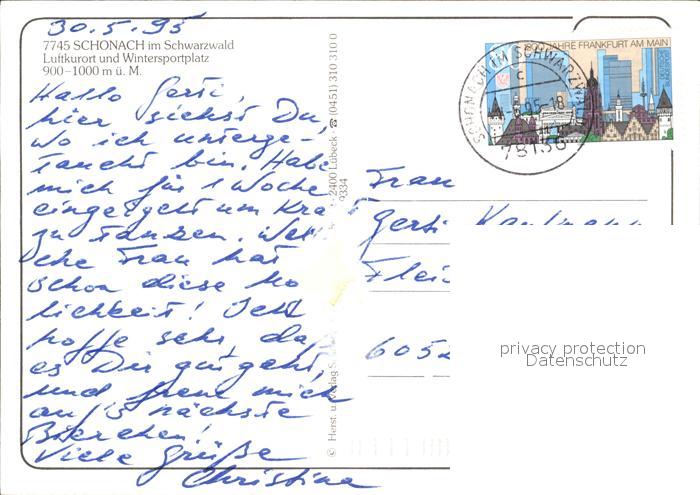 30.5.95
7745 SCHONACH im Schwarzwald
Luftkurort und Wintersportplatz
900–1000 m ü. M.
Hallo Gerti,
hier siehst Du,
wo ich unterge-
taucht bin. Habe
mich für 1 Woche
eingeigelt um Kra
zu tanken. Wel
che Frau hat
schon diese Mö
lichkeit! Jetzt
hoffe sehr, da
es Dir gut geht,
und freue mich
auf's nächste
Bierchen!
Viele Grüße
Christina
© Herst. u. Verlag S
2400 Lübeck · ☎ (0451) 310 310 0
9334
JAHRE FRANKFURT AM MAIN
SCHONACH IM SCHWARZW
c
78136
Frau
Gerti Kaufmann
6052
privacy protection
Datenschutz